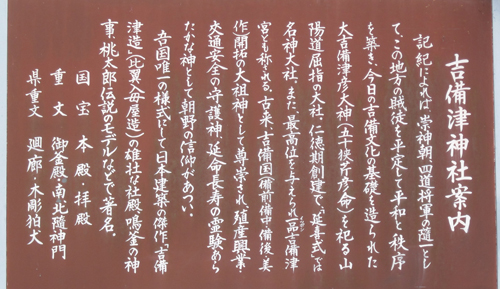 吉備津神社案内
記紀によれば、崇神朝、四道将軍の随一とし
て、この地方の賊徒を平定して平和と秩序
を築き、今日の吉備文化の基礎を造られた
大吉備津彦大神(五十狭芹彦命)を祀る山
陽道屈指の大社。仁徳期創建で、「延喜式」では
名神大社、また、最高位を与えられ「一品吉備津
宮」とも称れる。古来、吉備国(備前備中備後、美
作)開拓の大祖神として尊崇され、殖産興業・
交通安全の守護神、延命長寿の霊験あら
たかな神として朝野の信仰があつい。
吾国唯一の様式にして日本建築の傑作「吉備
津造」(比翼入母屋造)の雄壮な社殿、鳴釜の神
事、桃太郎伝説のモデルなどで著名。
国宝 本殿・拝殿
重文 御釜殿・南北随神門
県重文 廻廊・木彫狛犬